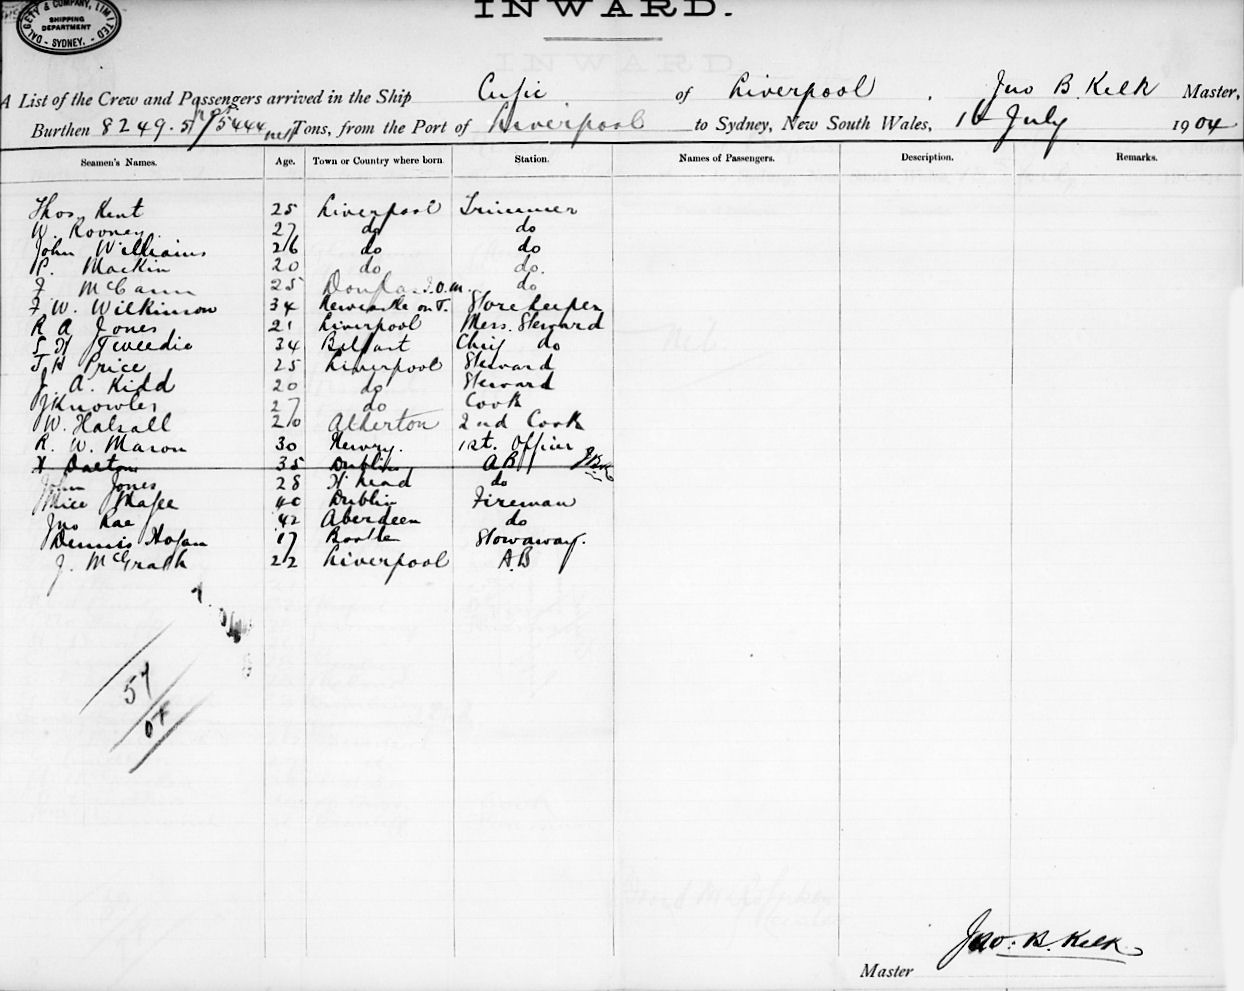 DALGETY & COMPANY, LIMITED
SHIPPING DEPARTMENT
SYDNEY.
INWARD.
A List of the Crew and Passengers arrived in the Ship Cufic of Liverpool, Jno B. Kelk Master,
Burthen 8249.57/5444 nett Tons, from the Port of Liverpool to Sydney, New South Wales, 16 July 1904
Seamen's Names. Age. Town or Country where born Station. Names of Passengers. Description. Remarks.
Thos Kent 25 Liverpool Trimmer
W. Rooney 27 do do
John Williams 26 do do
P. Mackin 20 do do.
F McCann 25 Douglas I.O.M. do
F. W. Wilkinson 34 Newcastle on T. Storekeeper
R A Jones 21 Liverpool Mess. Steward
S H Tweedie 34 Belfast Chief do
T H Price 25 Liverpool Steward
J. A. Kidd 20 do Steward
J Knowles 27 do Cook
W. Halsall 20 Atherton 2nd Cook
R. W. Mason 30 Newry. 1st. Officer
Dalton 35 Dublin AB JBK
John Jones 28 H'head do
Mice 40 Dublin Fireman
Jno Rae 42 Aberdeen do
Dennis Hogan 17 Bootle Stowaway.
J. McGrath 22 Liverpool A.B
57/04
Jno. B. Kelk
Master